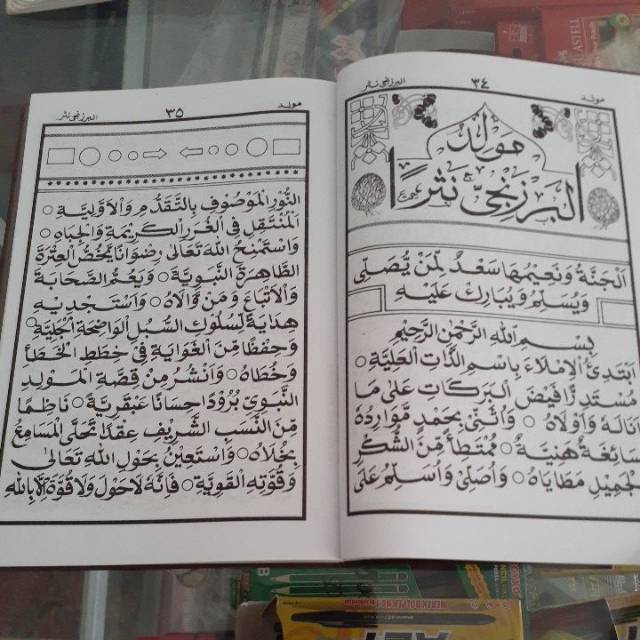 مولد
٣٤
البرزنجى نثر
مولد
البرزنجى نثرًا
اَلْجَنَّةُ وَنَعِيْمُهَا سَعْدٌ لِمَنْ يُصَلِّى
وَيُسَلِّمُ وَيُبَارِكُ عَلَيْهِ
بِسْمِ اللهِ الرَّحْمٰنِ الرَّحِيْمِ
اَبْتَدِئُ الْاِمْلَاءَ بِاسْمِ الذَّاتِ الْعَلِيَّةِ ○
مُسْتَدِرًّا فَيْضَ الْبَرَكَاتِ عَلٰى مَا
اَنَالَهُ وَاَوْلَاهُ ○ وَاُثَنِّى بِحَمْدٍ مَوَارِدُهُ
سَائِغَةٌ هَنِيَّةٌ ○ مُمْتَطِأً مِنَ الشُّكْرِ
الْجَمِيْلِ مَطَايَاهُ ○ وَاُصَلِّى وَاُسَلِّمُ عَلَى
مولد
٣٥
البرزنجى نثر
النُّوْرِ الْمَوْصُوْفِ بِالتَّقَدُّمِ وَالْاَوَّلِيَّةِ ○
اَلْمُنْتَقِلِ فِى الْغُرَرِ الْكَرِيْمَةِ وَالْجِبَاهِ ○
وَاَسْتَمْنِحُ اللهَ تَعَالٰى رِضْوَانًا يَخُصُّ الْعِتْرَةَ
الطَّاهِرَةَ النَّبَوِيَّةَ ○ وَيَعُمُّ الصَّحَابَةَ
وَالْاَتْبَاعَ وَمَنْ وَالَاهُ ○ وَاَسْتَجْدِيْهِ
هِدَايَةً لِسُلُوْكِ السُّبُلِ الْوَاضِحَةِ الْجَلِيَّةِ ○
وَحِفْظًا مِنَ الْغَوَايَةِ فِى خِطَطِ الْخَطَأِ
وَخُطَاهُ ○ وَاَنْشُرُ مِنْ قِصَّةِ الْمَوْلِدِ
النَّبَوِىِّ بُرُوْدًا حِسَانًا عَبْقَرِيَّةً ○ نَاظِمًا
مِنَ النَّسَبِ الشَّرِيْفِ عِقْدًا تُحَلَّى الْمَسَامِعُ
بِحُلَاهُ ○ وَاَسْتَعِيْنُ بِحَوْلِ اللهِ تَعَالٰى
وَقُوَّتِهِ الْقَوِيَّةِ ○ فَاِنَّهُ لَاحَوْلَ وَلَا قُوَّةَ اِلَّا بِاللهِ